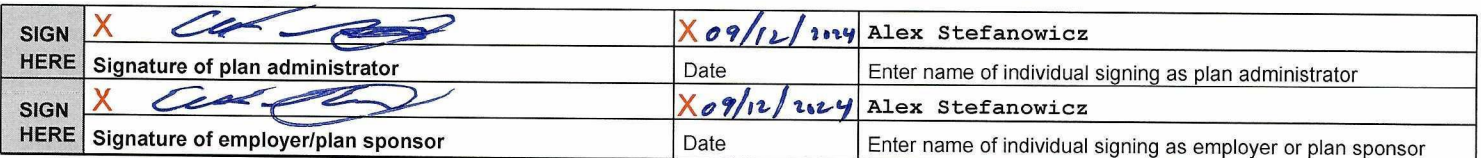 SIGN HERE X X 09/12/2024 Alex Stefanowicz
Signature of plan administrator Date Enter name of individual signing as plan administrator
SIGN HERE X X 09/12/2024 Alex Stefanowicz
Signature of employer/plan sponsor Date Enter name of individual signing as employer or plan sponsor